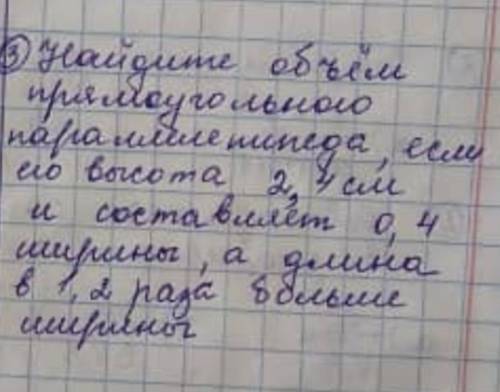 3) Найдите объём
прямоугольного
параллелепипеда, если
его высота 2,4 см
и составляет 0,4
ширины, а длина
в 1,2 раза больше
ширины